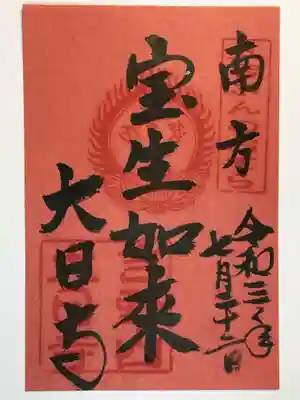 南方
令和三年
七月二十二日
宝生如来
大日寺